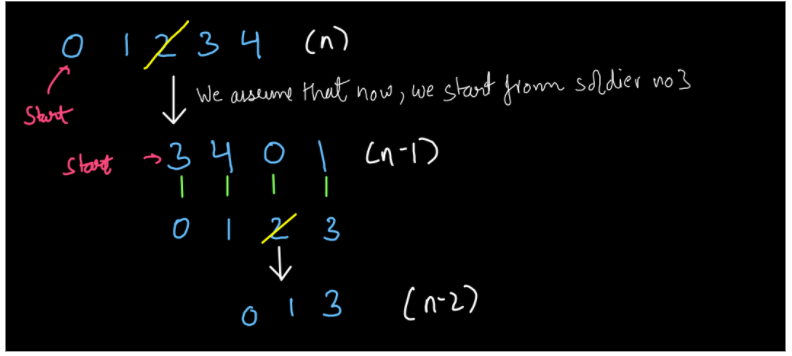 0 1 2 3 4 (n)
Start
We assume that now, we start from soldier no 3
Start → 3 4 0 1 (n-1)
0 1 2 3
0 1 3 (n-2)